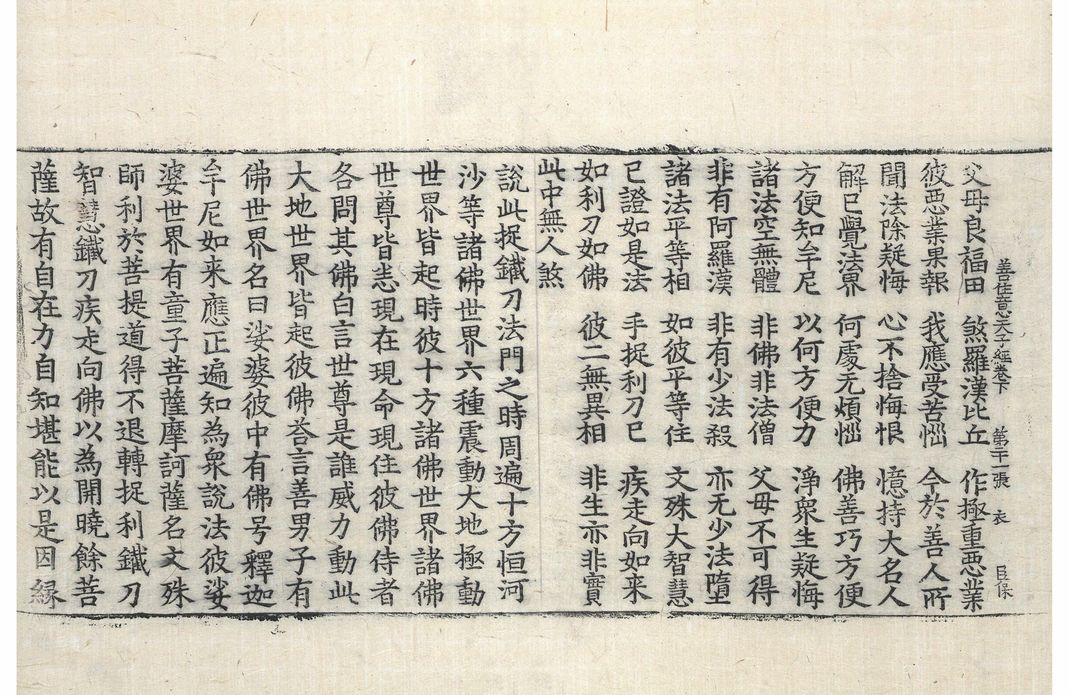 善住意天子經卷下 第二十一張 衣 臣保
父母良福田 煞羅漢比丘 作極重惡業
彼惡業果報 我應受苦惱 今於善人所
聞法除疑悔 心不捨悔恨 憶持大名人
解已覺法界 何處无煩惱 佛善巧方便
方便知牟尼 以何方便力 淨衆生疑悔
諸法空無體 非佛非法僧 父母不可得
非有阿羅漢 非有少法殺 亦无少法墮
諸法平等相 如彼平等住 文殊大智慧
已證如是法 手捉利刀已 疾走向如來
如利刀如佛 彼二無異相 非生亦非實
此中無人煞
說此捉鐵刀法門之時周遍十方恒河
沙等諸佛世界六種震動大地極動
世界皆起時彼十方諸佛世界諸佛
世尊皆悉現在現命現住彼佛侍者
各問其佛白言世尊是誰威力動此
大地世界皆起彼佛荅言善男子有
佛世界名曰娑婆彼中有佛号釋迦
牟尼如来應正遍知為衆說法彼娑
婆世界有童子菩薩摩訶薩名文殊
師利於菩提道得不退轉捉利鐵刀
智慧鐵刀疾走向佛以為開曉餘菩
薩故有自在力自知堪能以是因緣